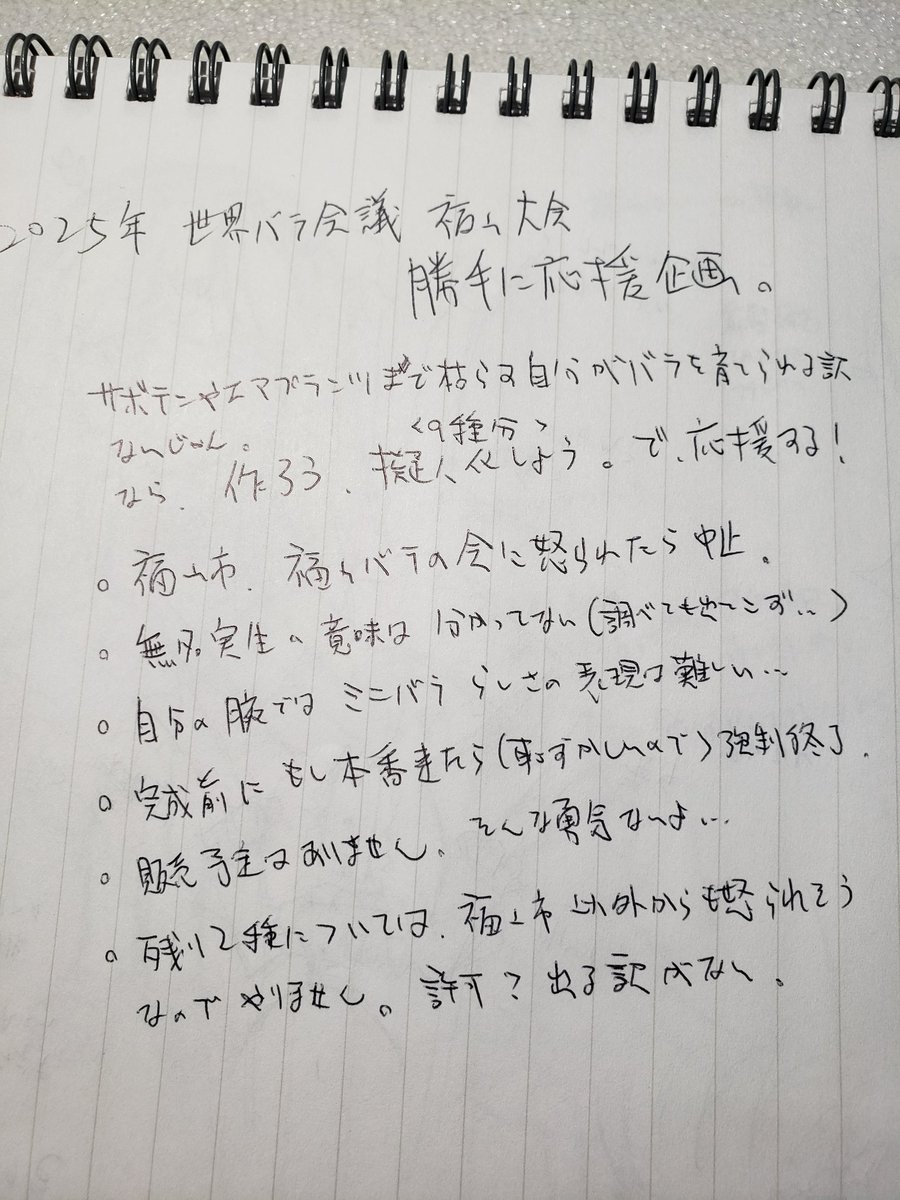 2025年 世界バラ会議 福山大会
勝手に応援企画。
サボテンやエアプランツまで枯らす自分がバラを育てられる訳
ないじゃん。
<9種分>
なら、作ろう、擬人化しよう。で、応援する!
。福山市、福山バラの会に怒られたら中止。
。無名実生の意味は分かってない(調べても出てこず…)
。自分の腕ではミニバラらしさの表現は難しい…
。完成前にもし本番来たら(恥ずかしいので)強制終了.
。販売予定はありません。そんな勇気ないよ…
。残り2種については、福山市以外からも怒られそう
なのでやりません。許可?出る訳がない。